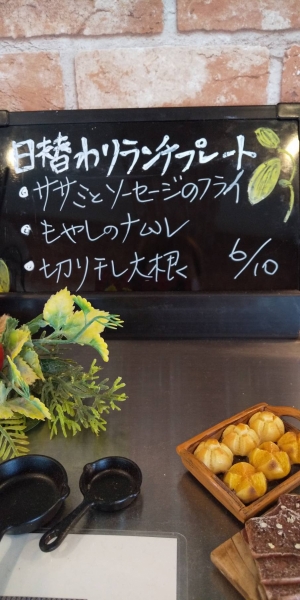 日替わりランチプレート
• ササミとソーセージのフライ
• もやしのナムル
• 切り干し大根
6/10